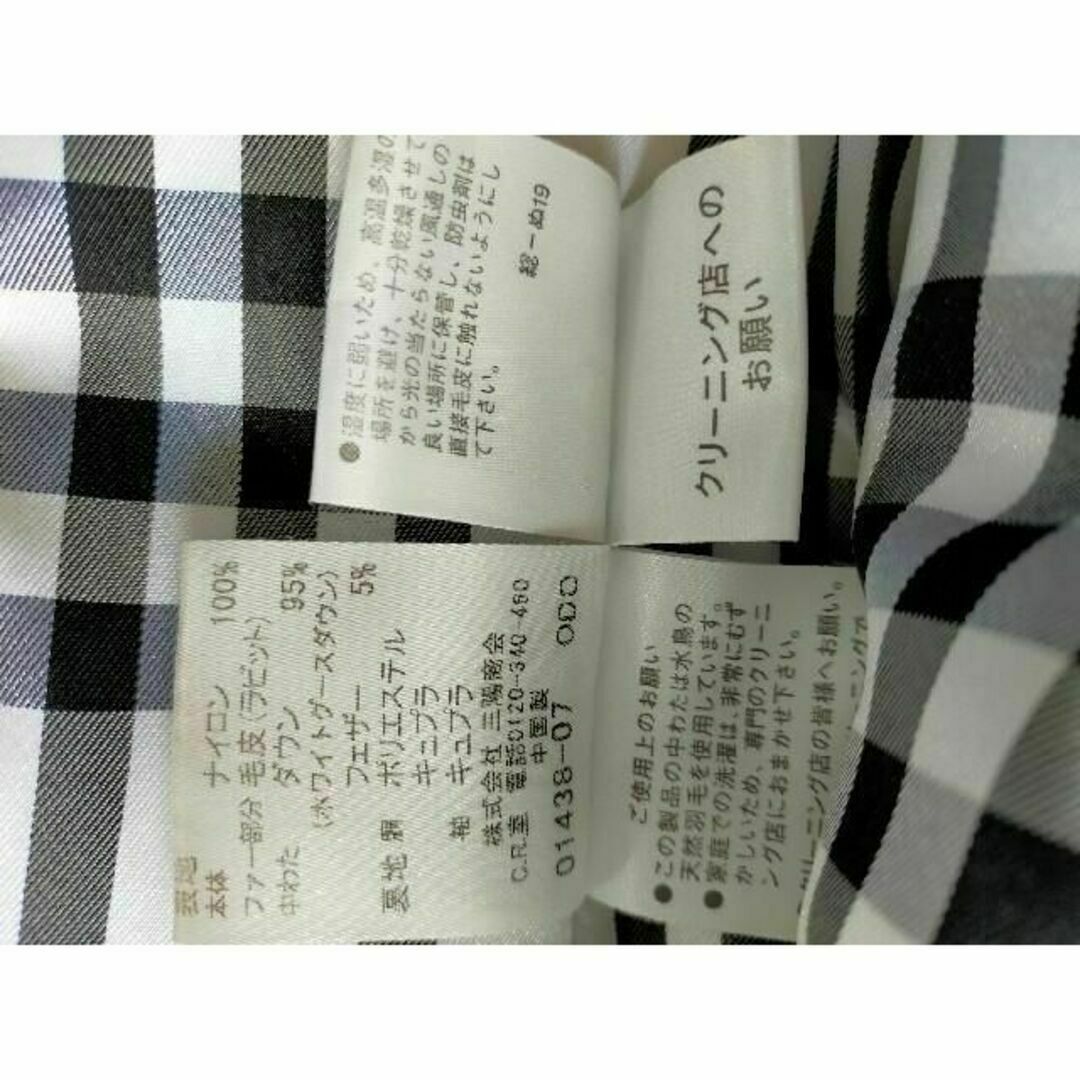 ●湿度に弱いため、高温多湿の
場所を避け、十分乾燥させて
から光の当たらない風通しの
良い場所に保管し、防虫剤は
直接毛皮に触れないようにし
て下さい。
総－ぬ19
クリーニング店への
お願い
表地
本体 ナイロン 100%
ファー部分 毛皮(ラビット)
中わた ダウン 95%
(ホワイトグースダウン)
フェザー 5%
裏地 胴 ポリエステル
キュプラ
袖 キュプラ
株式会社 三陽商会
C.R.室 電話0120-340-460
中国製
01438-07 000
ご使用上のお願い
●この製品の中わたは水鳥の
天然羽毛を使用しています。
●家庭での洗濯は、非常にむず
かしいため、専門のクリーニ
ング店におまかせ下さい。
クリーニング店の皆様へお願い。